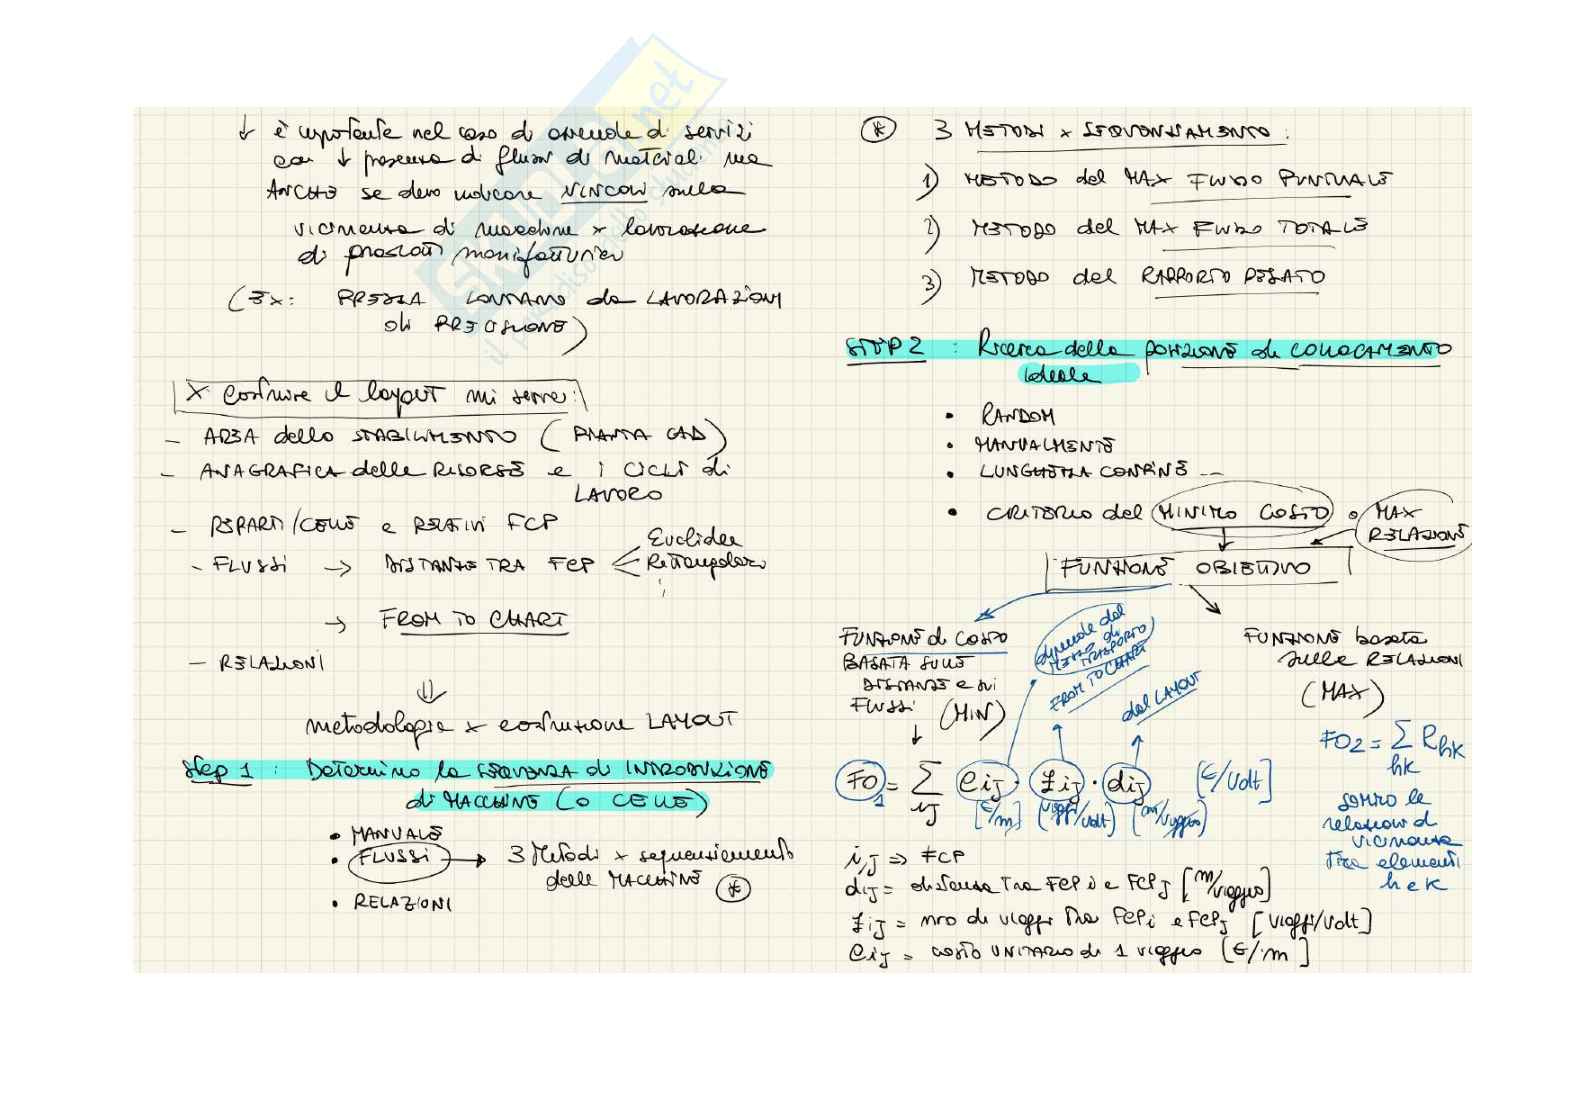 ↓ è importante nel caso di aziende di servizi
con ↓ presenza di flussi di materiali ma
ANCHE se devo indicare VINCOLI sulla
vicinanza di macchine x lavorazione
di prodotti manifatturieri
(Ex: PRESSA LONTANO da LAVORAZIONI
di PRECISIONE)
X costruire il layout mi serve:
- AREA dello STABILIMENTO (PIANTA CAD)
- ANAGRAFICA delle RISORSE e i CICLI di
LAVORO
- REPARTI/CELLE e RELATIVI FCP
- FLUSSI → DISTANZE TRA FCP < Euclidee
Rettangolari
→ FROM TO CHART
- RELAZIONI
⇓
metodologie x costruzione LAYOUT
Step 1 : Determino la SEQUENZA di INTRODUZIONE
di MACCHINE (O CELLE)
• MANUALE
• FLUSSI → 3 Metodi x sequenziamento
delle MACCHINE (*)
• RELAZIONI
(*) 3 METODI x SEQUENZIAMENTO :
1) METODO del MAX FLUSSO PUNTUALE
2) METODO del MAX FLUSSO TOTALE
3) METODO del RAPPORTO PESATO
STEP 2 : Ricerca della POSIZIONE di COLLOCAMENTO
ideale
• RANDOM
• MANUALMENTE
• LUNGHEZZA CONFINE --
• CRITERIO del MINIMO COSTO o MAX
RELAZIONE
FUNZIONE OBIETTIVO
FUNZIONE di COSTO
BASATA SULLE
DISTANZE e sui
FLUSSI (MIN)
dipende dal
MEZZO di
TRASPORTO
FROM TO CHART
dal LAYOUT
FUNZIONE basata
sulle RELAZIONI
(MAX)
FO1 = ∑ij Cij · fij · dij [€/Volt]
[€/m] [viaggi/volt] [m/viaggio]
FO2 = ∑hk Rhk
sommo le
relazioni di
vicinanza
tra elementi
h e k
i,j => FCP
dij = distanza tra FCP i e FCP j [m/viaggio]
fij = nro di viaggi tra FCP i e FCP j [viaggi/volt]
Cij = costo UNITARIO di 1 viaggio [€/m]
skuola.net
il paradiso dello studente